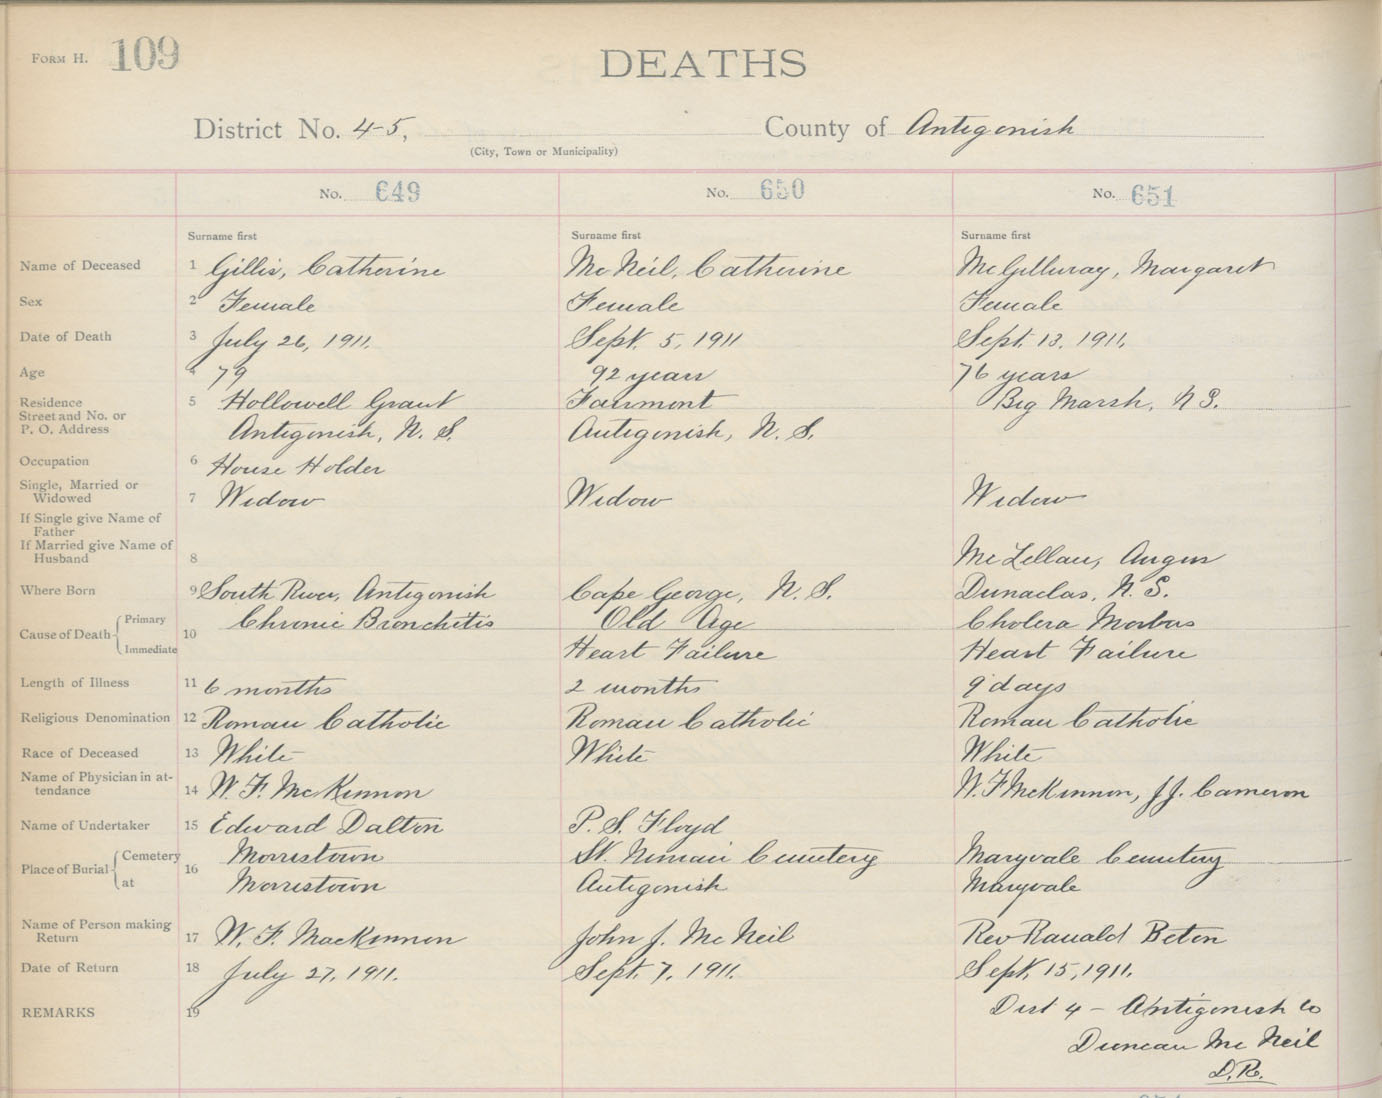 FORM H. 109
DEATHS
District No. 4-5,
County of Antigonish
(City, Town or Municipality)
No. 649
No. 650
No. 651
Surname first
Surname first
Surname first
Name of Deceased 1 Gillis, Catherine
McNeil, Catherine
McGillivray, Margaret
Sex 2 Female
Female
Female
Date of Death 3 July 26, 1911.
Sept. 5, 1911
Sept. 13, 1911.
Age 4 79
92 years
76 years
Residence 5 Hollowell Grant
Fairmont
Big Marsh, N S.
Street and No. or
P. O. Address
Antigonish, N. S.
Antigonish, N. S.
Occupation 6 House Holder
Single, Married or
Widowed 7 Widow
Widow
Widow
If Single give Name of
Father
If Married give Name of
Husband 8
McLellan, Angus
Where Born 9 South River, Antigonish
Cape George, N. S.
N. S.
Cause of Death Primary 10 Chronic Bronchitis
Old Age
Cholera Morbus
Immediate
Heart Failure
Heart Failure
Length of Illness 11 6 months
2 months
9 days
Religious Denomination 12 Roman Catholic
Roman Catholic
Roman Catholic
Race of Deceased 13 White
White
White
Name of Physician in at-
tendance 14 W. F. McKinnon
W. F McKinnon, J J. Cameron
Name of Undertaker 15 Edward Dalton
P. S. Floyd
Place of Burial Cemetery 16 Morristown
St. Ninian Cemetery
Maryvale Cemetery
at Morristown
Antigonish
Maryvale
Name of Person making
Return 17 W. F. MacKinnon
John J. McNeil
Rev Ranald Beton
Date of Return 18 July 27, 1911.
Sept. 7, 1911.
Sept. 15, 1911.
REMARKS 19
Dist 4 - Antigonish Co
Duncan McNeil
D. R.